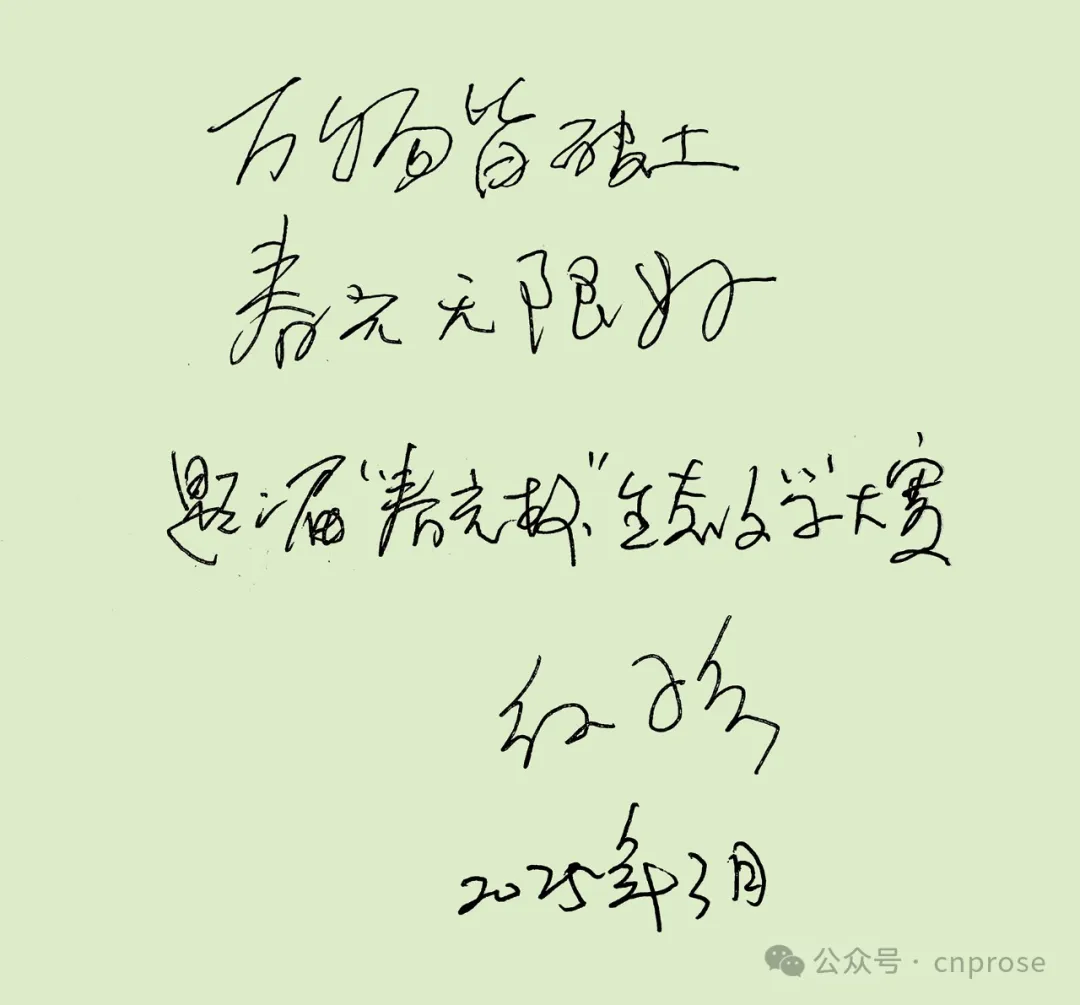 万物皆破土
春光无限好
题二届“春光杯”生态文学大赛
红孩
2025年3月
公众号 · cnprose